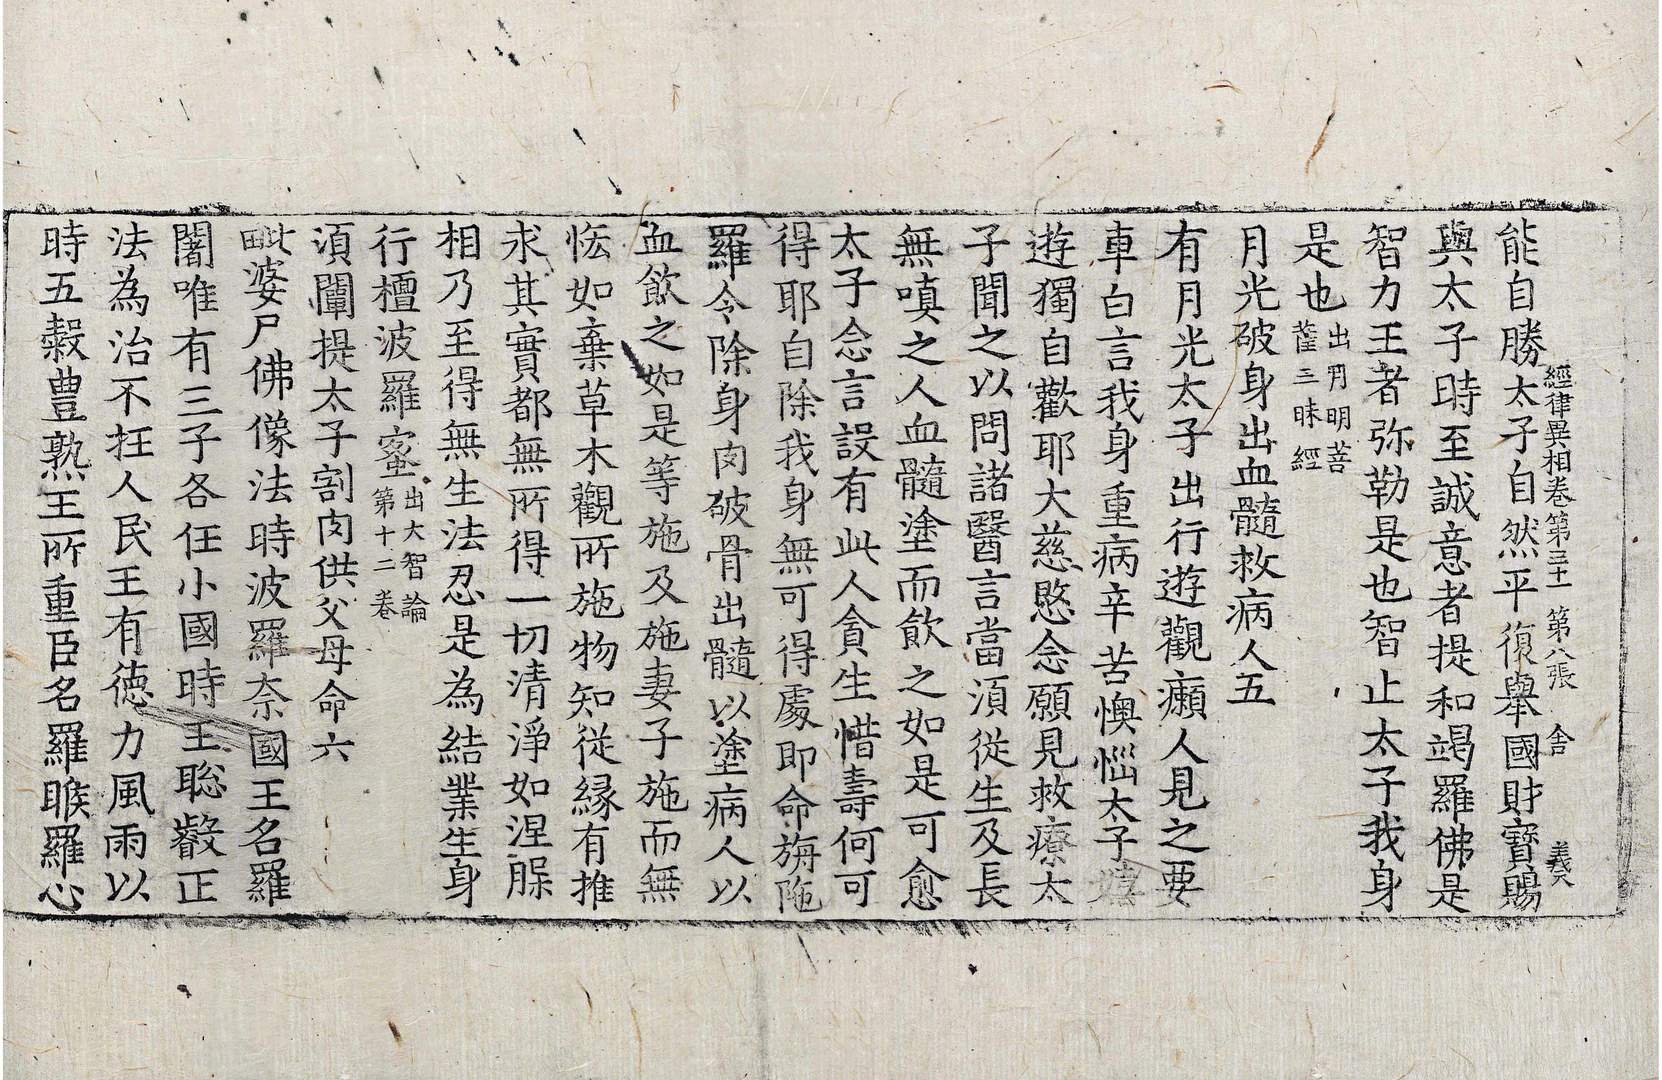 經律異相卷第三十一 第八張 舍 義天
能自勝太子自然平復舉國財寶賜
與太子時至誠意者提和竭羅佛是
智力王者弥勒是也智止太子我身
是也出月明菩薩三昧經
月光破身出血髓救病人五
有月光太子出行遊觀癩人見之要
車白言我身重病辛苦懊惱太子嬉
遊獨自歡耶大慈愍念願見救療太
子聞之以問諸醫言當須從生及長
無嗔之人血髓塗而飲之如是可愈
太子念言設有此人貪生惜壽何可
得耶自除我身無可得處即命旃陁
羅令除身肉破骨出髓以塗病人以
血飲之如是等施及施妻子施而無
恡如棄草木觀所施物知從緣有推
求其實都無所得一切清淨如涅槃
相乃至得無生法忍是為結業生身
行檀波羅蜜出大智論第十二卷
須闡提太子割肉供父母命六
毗婆尸佛像法時波羅奈國王名羅
闍唯有三子各任小國時王聡叡正
法為治不枉人民王有德力風雨以
時五穀豊熟王所重臣名羅睺羅心